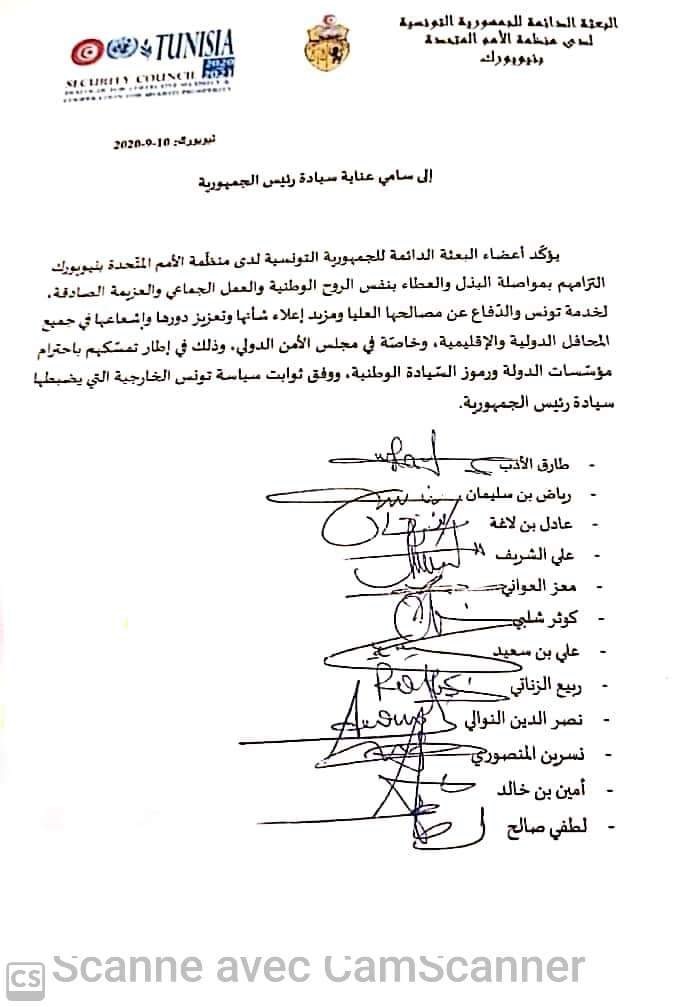 البعثة الدائمة للجمهورية التونسية
لدى منظمة الأمم المتحدة
بنيويورك
TUNISIA
2020
2021
SECURITY COUNCIL
نيويورك: 10-9-2020
إلى سامي عناية سيادة رئيس الجمهورية
يؤكّد أعضاء البعثة الدائمة للجمهورية التونسية لدى منظّمة الأمم المتّحدة بنيويورك
التزامهم بمواصلة البذل والعطاء بنفس الروح الوطنية والعمل الجماعي والعزيمة الصادقة،
لخدمة تونس والدّفاع عن مصالحها العليا ومزيد إعلاء شأنها وتعزيز دورها وإشعاعها في جميع
المحافل الدولية والإقليمية، وخاصّة في مجلس الأمن الدولي، وذلك في إطار تمسّكهم باحترام
مؤسّسات الدولة ورموز السّيادة الوطنية، ووفق ثوابت سياسة تونس الخارجية التي يضبطها
سيادة رئيس الجمهورية.
- طارق الأدب
- رياض بن سليمان
- عادل بن لاغة
- علي الشريف
- معز العواني
- كوثر شلبي
- علي بن سعيد
- ربيع الزناتي
- نصر الدين النوالي
- نسرين المنصوري
- أمين بن خالد
- لطفي صالح
CS Scanné avec CamScanner